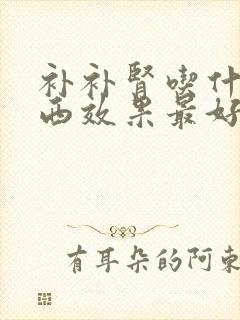 补补肾喫什
西效果最好
有耳朵的阿东